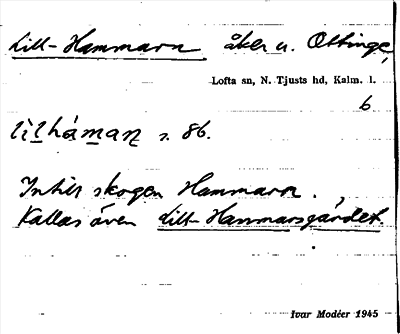 Lill-Hammarn åker u. Ottinge,
Lofta sn, N. Tjusts hd, Kalm. l.
6
lìlháman s. 86.
Intill skogen Hammarn.
Kallas även Lill-Hammarsgärdet.
Ivar Modéer 1945